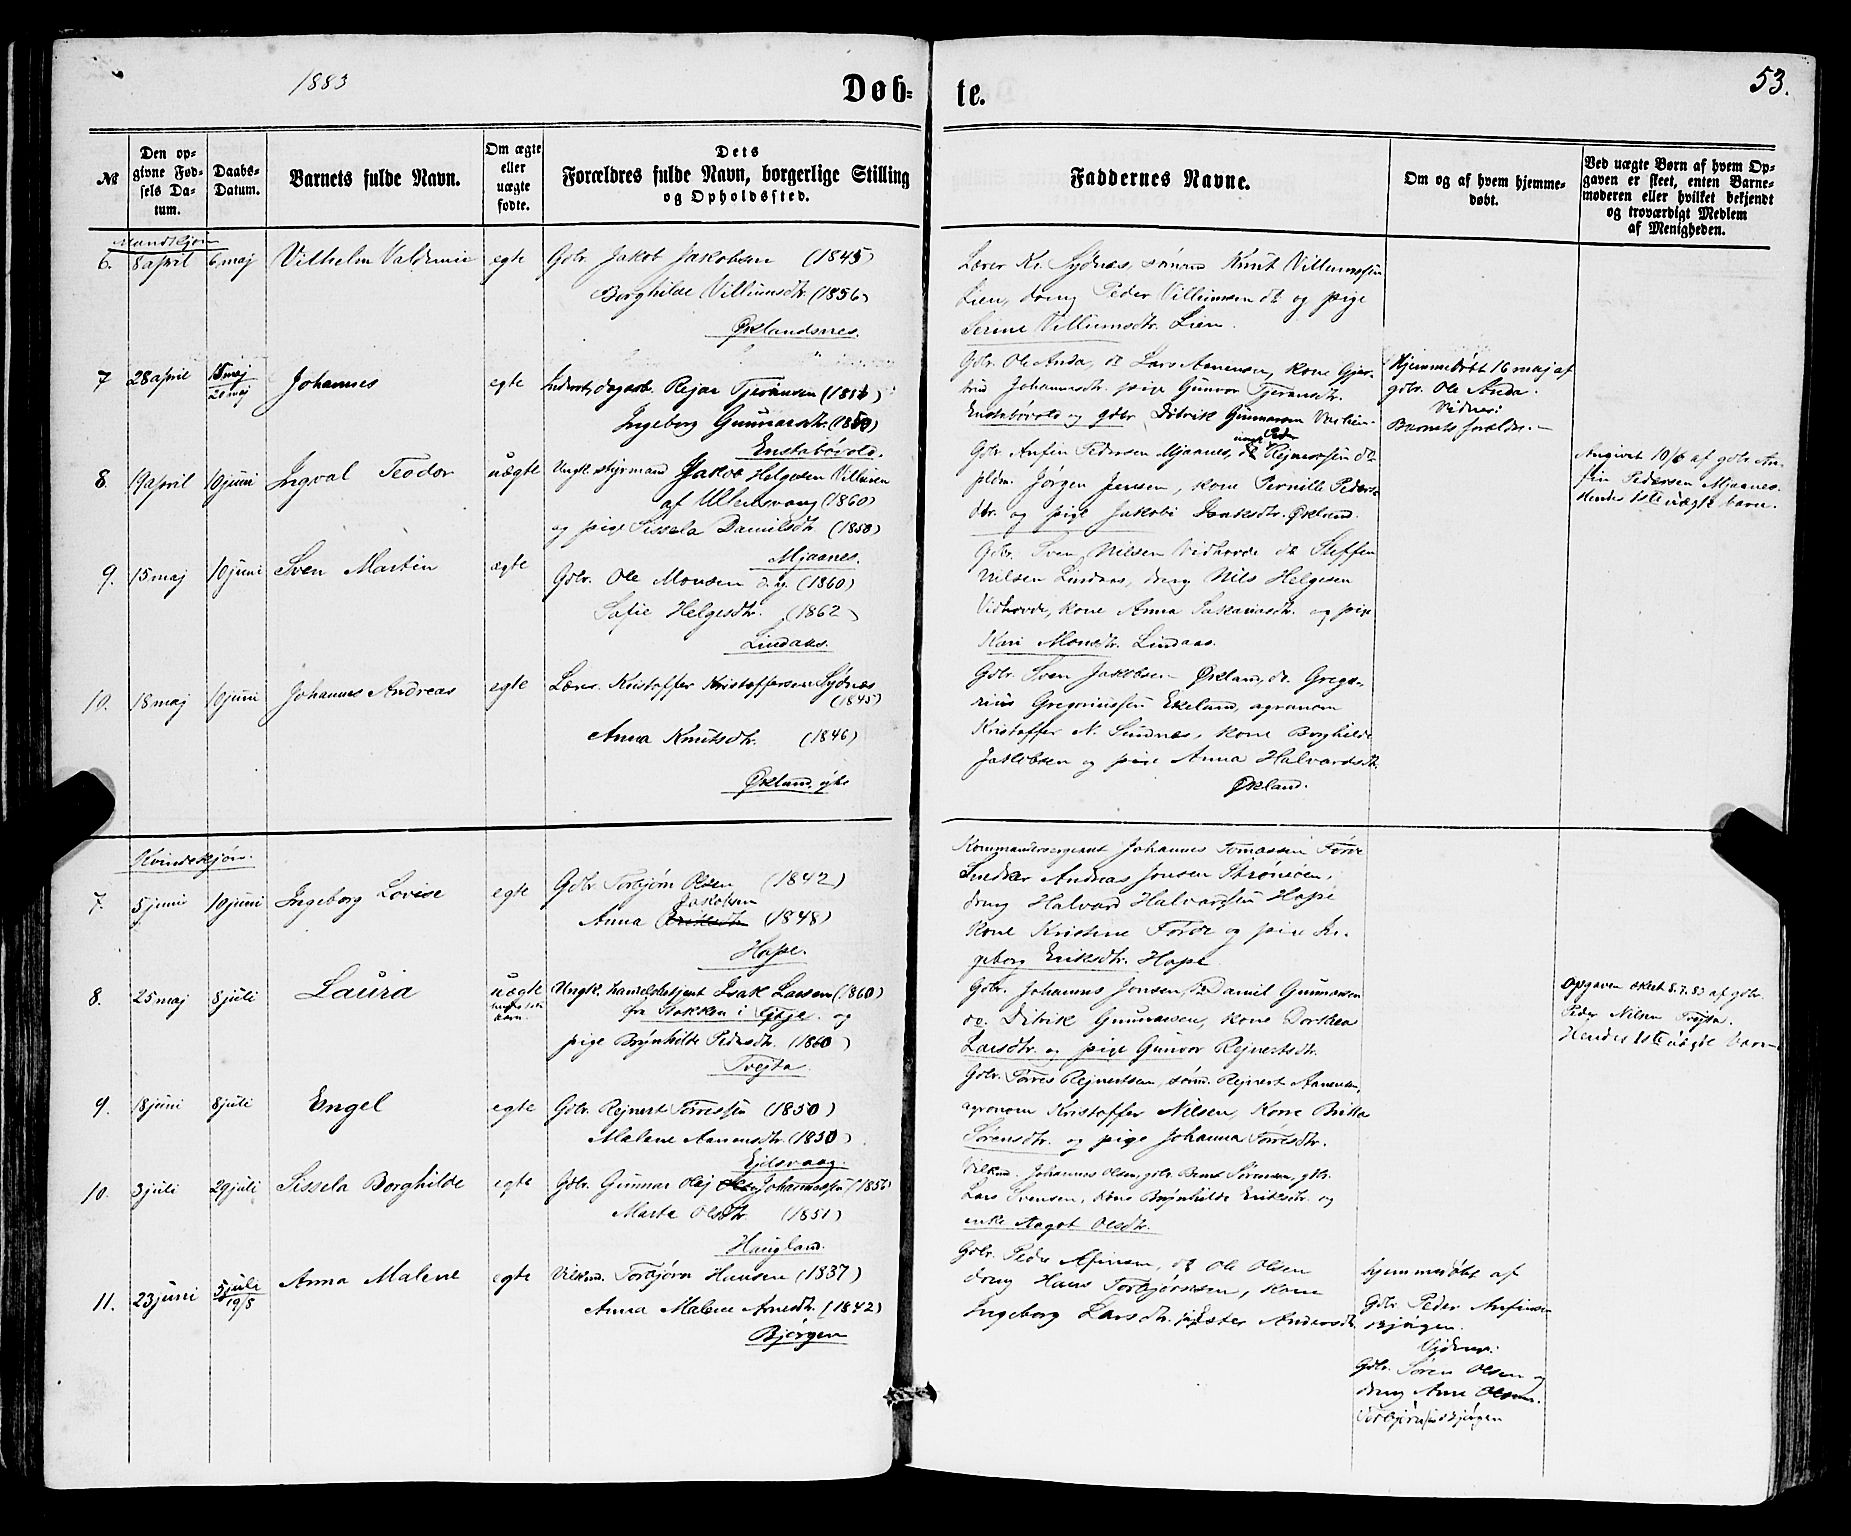 1883
Døb-
te.
53.
№
Den op-
givne Fød-
sels Da-
tum.
Daabs-
Datum.
Barnets fulde Navn.
Om ægte
eller
uægte
fødte.
Dets
Forældres fulde Navn, borgerlige Stilling
og Opholdssted.
Faddernes Navne.
Om og af hvem hjemme-
døbt.
Ved uægte Børn af hvem Op-
gaven er skeet, enten Barne-
moderen eller hvilket bekjendt
og troværdigt Medlem
af Menigheden.
Mandkjøn
6. 8 april 6 maj Vilhelm Valdemar egte Gdbr. Jakob Jakobsen (1845)
Borghilde Villumsdtr. (1856)
Øklandsnes.
Lærer Kr. Sydnæs, sømand Knut Villumssen
Lien, dreng Peder Villumsen do og pige
Serine Villumsdtr. Lien.
7 28 april 16 maj
20 maj
Johannes egte Inderst, dagarb. Rejar Tjeransen (1851)
Ingeborg Gunnarsdtr. (1850)
Enstabövold.
Gdbr. Ole Anda, do Lars Aanensen, kone Gjer-
trud Johannesdtr. pige Gunvor Tjeransdtr.
Enstabövold og gdbr. Didrik Gunnarsen
Hjemmedøbt 16 maj af
gdbr. Ole Anda.
Vidner:
Barnets forældre.
8. 19 april 10 juni Ingval Teodor uægte Ungk. styrmand Jakob Helgesen Villuren
af Ullensvang (1860)
og pige Sissela Danilsdtr (1850)
Mjaanes.
Gdbr. Anfin Pedersen Mjaanes, ungk. Peder Rejnertsen do
pldm. Jørgen Jensen, kone Pernille Peders-
dtr. og pige Jakobi Isaksdtr. Økland.
Angivet 10/6 af gdbr. An-
fin Pedersen Mjaanes.
Hendes 1ste uægte barn.
9. 15 maj 10 juni Sven Martin ægte Gdbr. Ole Monsen d.y. (1860)
Sofie Helgesdtr. (1862)
Lindaas.
Gdbr. Sven Nilsen Vidhovde do Steffen
Nilsen Lindaas, dreng Nils Helgesen
Vidhovde, kone Anna Sakariasdtr. og pige
Kari Monsdtr. Lindaas.
10. 18 maj 10 juni Johannes Andreas egte Lærer. Kristoffer Kristoffersen Sydnæs
(1845)
Anna Knutsdtr. (1846)
Økland, ytre
Gdbr. Sven Jakobsen Økland, do. Grego-
rius Gregoriussen Ekeland, agronom
Kristoffer N. Sydnæs, kone Borghilde
Jakobsen og pige Anna Halvardsdtr.
Økland.
Kvindekjøn.
7. 5 juni 10 juni Ingeborg Lovise egte Gdbr. Torbjørn Olsen (1842)
Jakobsen
Anna Eriksdtr. (1848)
Hope.
Kommandersergeant Johannes Tomassen Førde
Snedker Andreas Jonsen
dreng Halvard Halvardsen Hope
kone Kristine Førde og pige In-
geborg Eriksdtr. Hope.
8. 25 maj 8 juli Laura uægte Ungk. handelsbetjent Isak Larsen (1860)
fra Stokken i Fitje. og
pige Brynhilde Pedersdtr. (1860)
Tvejta.
Gdbr. Johannes Jonsen, do Daniel Gunnarsen
do. Didrik Gunnarsen, kone Dorthea
Larsdtr. og pige Gunvor Rejnertsdtr.
Opgaven skeet 8.7.83 af gdbr.
Peder Nilsen Tvejta.
Hendes 1ste uægte barn
9. 18 juni 8 juli Engel egte Gdbr. Rejnert Tørressen (1850)
Malene Aanensdtr. (1850)
Ejdsvaag.
Gdbr. Tørres Rejnertsen, sømd. Rejnert Aanensen,
agronom Kristoffer Nilsen, kone Britta
Sørensdtr. og pige Johanna Tørresdtr.
10. 3 juli 29 juli Sissela Borghilde egte Gdbr. Gunnar Olaj Johannessen (1856)
Marta Olsdtr. (1851)
Haugland.
Vilkmd. Johannes Olsen, gdbr. Bernt Sørensen, gdbr.
Lars Svensen, kone Brynhilde Eriksdtr. og
enke Aagot Olsdtr.
11. 23 juni 5 juli
19/8
Anna Malene egte Vilkmd. Torbjørn Hansen (1837)
Anna Malene Arnesdtr. (1842)
Bjørgen
Gdbr. Peder Afinsen, do Ole Olsen
dreng Hans Torbjørnsen, kone
Ingeborg Larsdtr. pige Ester Andersdtr.
hjemmedøbt af
Gdbr. Peder Anfinsen
Bjørgen.
Vidner:
Gdbr. Søren Olsen og
dreng Arne Olsen